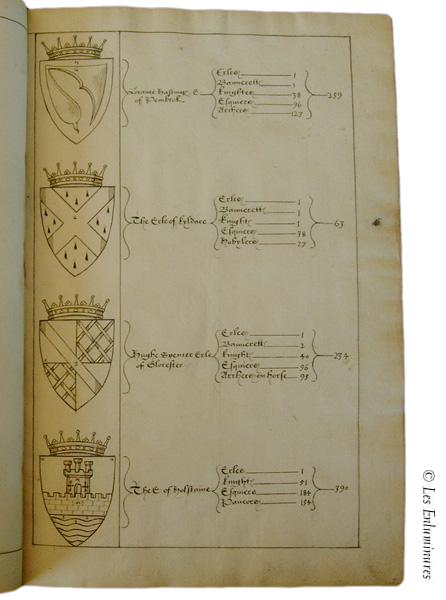 Lorance Hastings E
of Pembrok
Erles 1
Bannerett 1
knightes 38
Esquiers 96
Archers 127
259
The Erle of kyldare
Erles 1
Bannerett 1
knight 1
Esquiers 38
Hobylers 27
63
Hughe Spencer Erle
of Glocester
Erles 1
Bannerett 2
knight 40
Esquiers 96
Archers on horse 95
234
The E. of
Erles 1
knight 51
Esquiers 184
154
390
© Les Enluminures